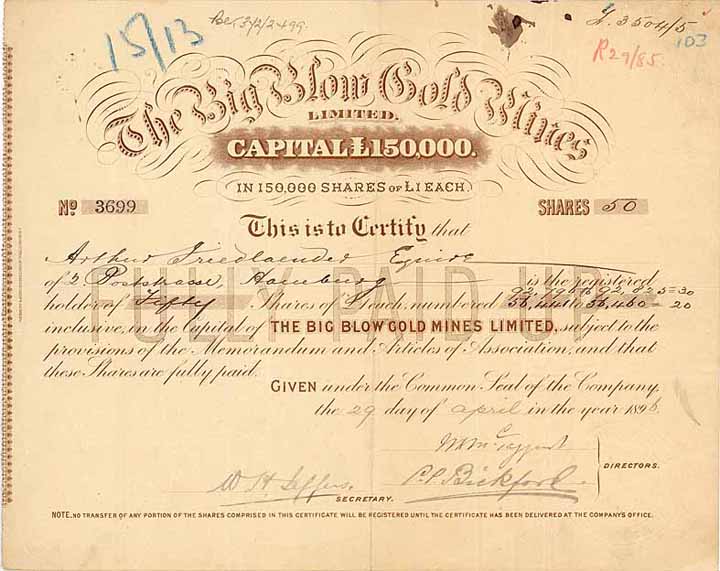 15/13
£.3504/5
103
R29/85
The Big Blow Gold Mines
LIMITED.
CAPITAL £150,000.
IN 150,000 SHARES OF £1 EACH.
No 3699
SHARES 50
This is to Certify that
Arthur Friedlaender Esquire
of 2 Poststrasse, Hamburg is the registered
holder of Fifty Shares of £1 each, numbered
56,441 to 56,460 = 20
inclusive, in the Capital of THE BIG BLOW GOLD MINES LIMITED, subject to the
provisions of the Memorandum and Articles of Association, and that
these Shares are fully paid.
FULLY PAID UP
GIVEN under the Common Seal of the Company,
the 29 day of april in the year 1896
DIRECTORS.
P.P. Bickford
SECRETARY.
NOTE. NO TRANSFER OF ANY PORTION OF THE SHARES COMPRISED IN THIS CERTIFICATE WILL BE REGISTERED UNTIL THE CERTIFICATE HAS BEEN DELIVERED AT THE COMPANY'S OFFICE.